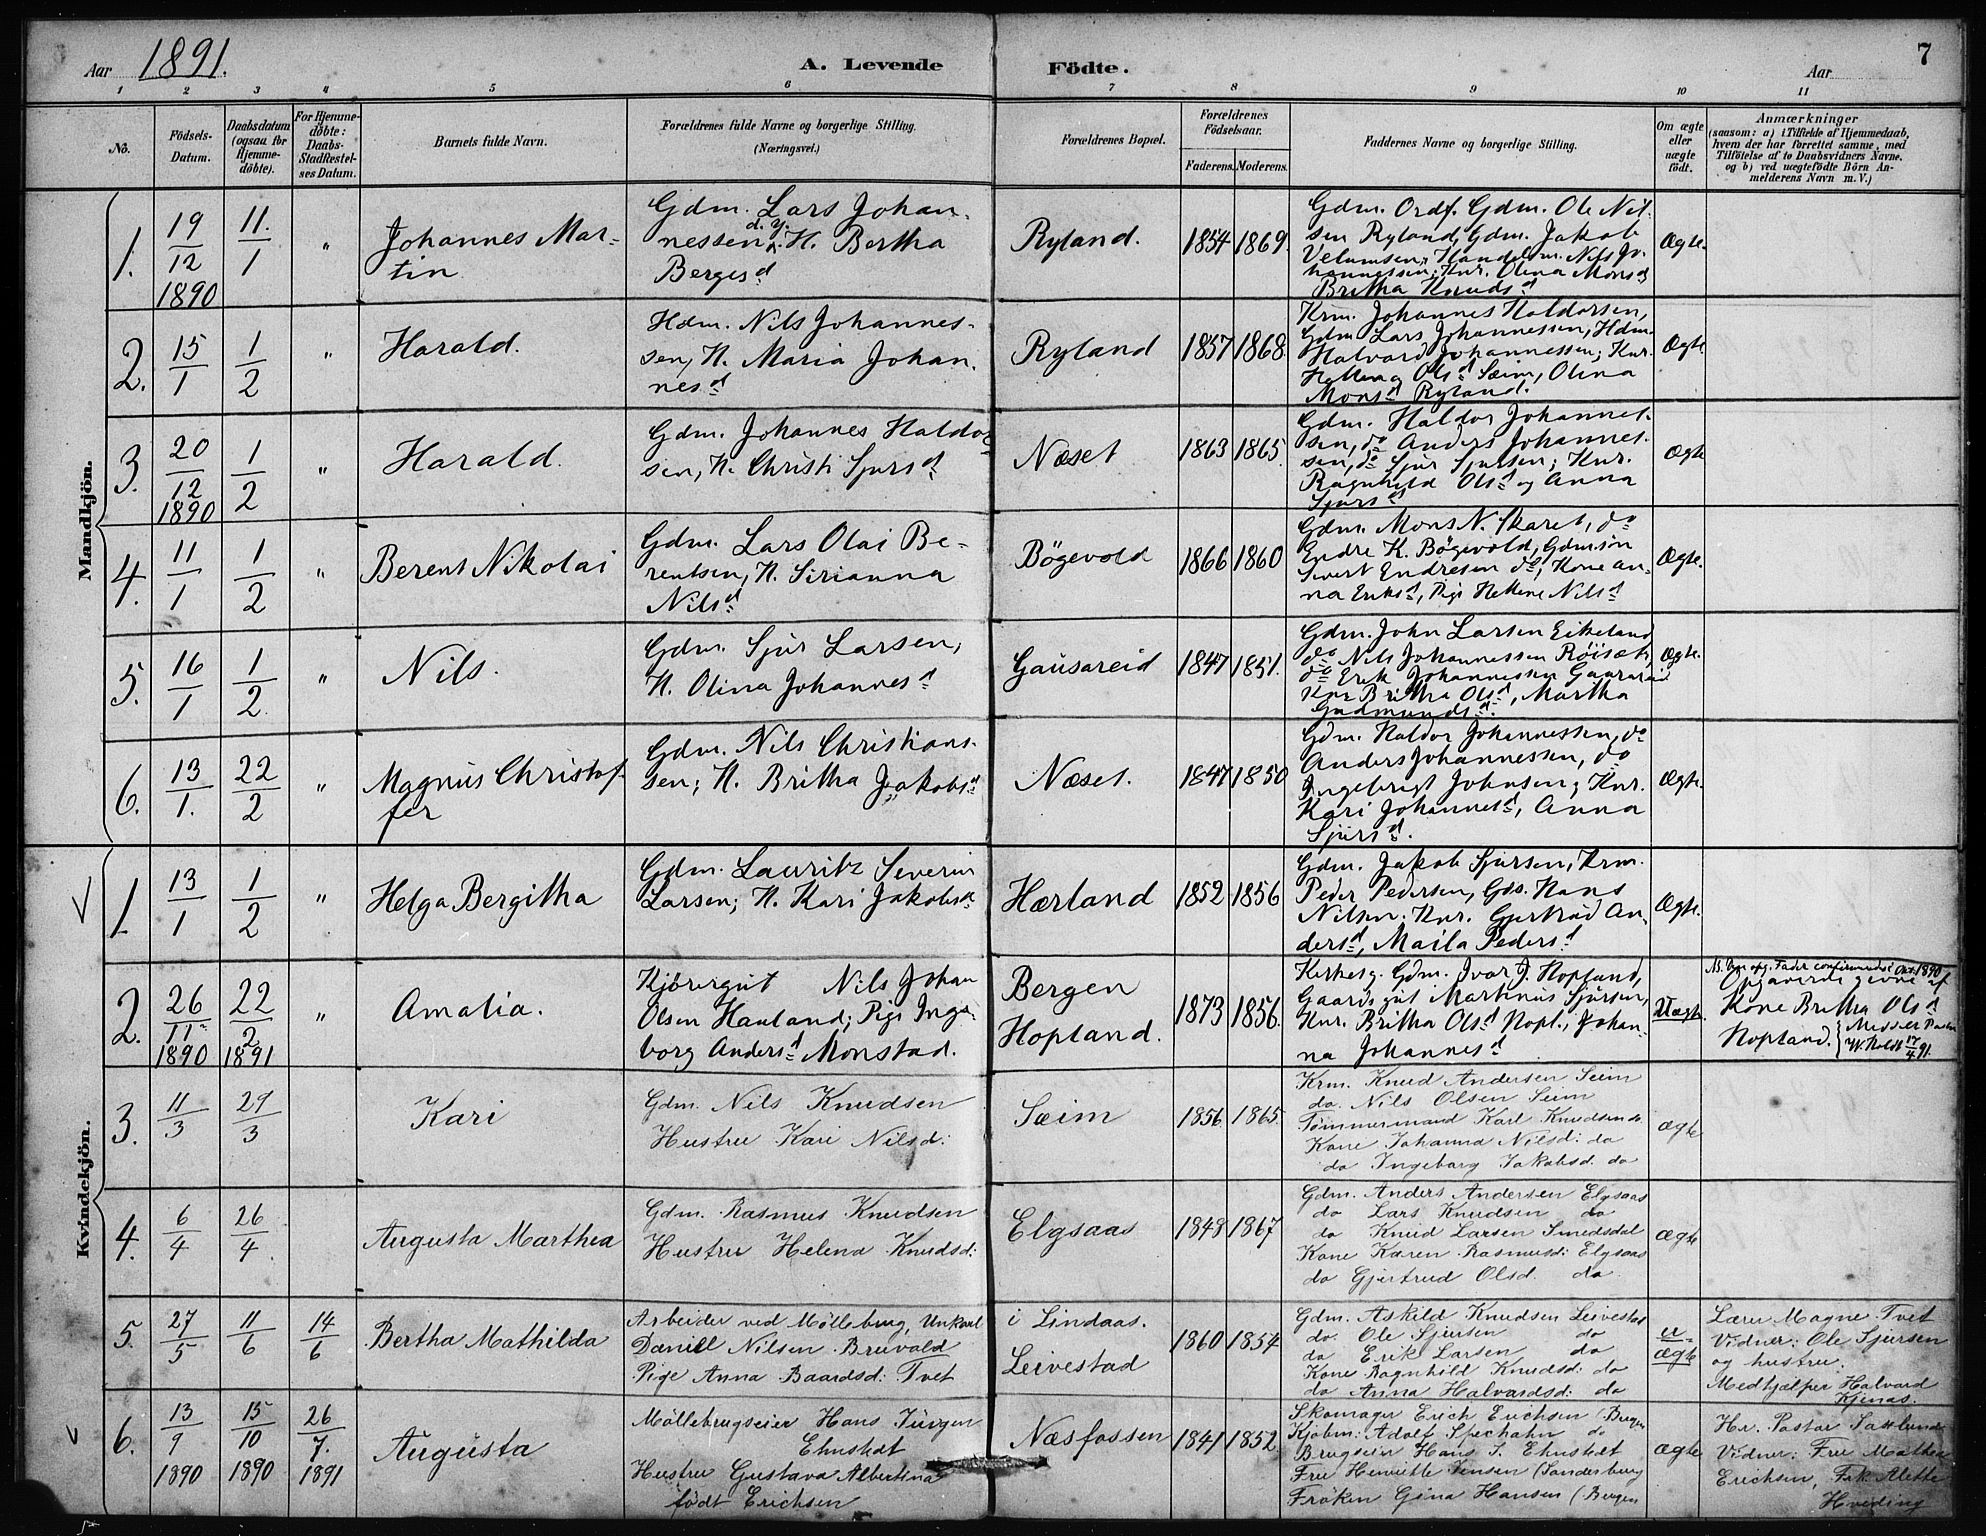 Aar 1891.
A. Levende Födte.
Aar
7
1 2 3 4 5 6 7 8 9 10 11
No.
Födsels-
Datum.
Daabsdatum
(ogsaa for
Hjemme-
döbte).
For Hjemme-
döbte:
Daabs-
Stadfæstel-
ses Datum.
Barnets fulde Navn.
Forældrenes fulde Navne og borgerlige Stilling.
(Næringsvei.)
Forældrenes Bopæl.
Forældrenes
Födselsaar.
Faderens.
Moderens.
Faddernes Navne og borgerlige Stilling.
Om ægte
eller
uægte
födt.
Anmærkninger
(saasom: a) i Tilfælde af Hjemmedaab,
hvem der har forrettet samme, med
Tilföielse af to Daabsvidners Navne,
og b) ved uægtefödte Börn An-
melderens Navn m. V.)
Mandkjön.
1.
19/12 1890
11/1
"
Johannes Mar-
tin
Gdm. Lars Johan-
nessen d. y. H. Bertha
Bergesd
Ryland.
1854
1869.
Gdm. Ordf. Gdm. Ole Nil-
sen Ryland, Gdm. Jakob
Handelsm. Nils Jo-
hannessen; Knr. Olina Monsd
Britha Knudsd
Ægte.
2.
15/1
1/2
"
Harald.
Hdm. Nils Johannes-
sen, H. Maria Johan-
nesd
Ryland
1857
1868.
Krm. Johannes Haldorsen,
Gdm Lars Johannessen, Hdm.
Halvard Johannessen; Knr.
Olsd Sæim, Olina
Monsd Ryland.
Ægte
3.
20/12 1890
1/2
"
Harald.
Gdm. Johannes Haldor-
sen, H. Christi Sjursd
Næset
1863
1865.
Gdm. Haldor Johannes-
sen, do Anders Johannes-
sen, do Sjur Sjursen; Knr.
Ragnhild Olsd og Anna
Sjursd
Ægte
4.
11/1
1/2
"
Berent Nikolai
Gdm. Lars Olai Be-
rentsen, H. Sirianna
Nilsd
Bögevold
1866
1860
Gdm. Mons N. Skaret, do
Endre K. Bögevold, Gdmsön
Sivert Endresen do; Kone An-
na Eriksd, Pige Hellene Nilsd
Ægte.
5.
16/1
1/2
"
Nils.
Gdm. Sjur Larsen,
H. Olina Johannesd
Gausareid
1847
1851.
Gdm. John Larsen Eikeland
do Nils Johannessen Röisæt,
do Erik Johannessen Gausareid
Knr Britha Olsd, Martha
Gudmundsd.
Ægte.
6.
13/1.
22/2
"
Magnus Christof-
fer
Gdm. Nils Christians-
sen; H. Britha Jakobsd
Næset.
1847
1850
Gdm. Haldor Johannessen, do
Anders Johannessen, do
Ingebrigt Johnsen; Knr.
Kari Johannesd, Anna
Sjursd.
Ægte.
Kvindekjön.
1.
13/1
1/2
"
Helga Bergitha
Gdm. Lauritz Severin
Larsen; H. Kari Jakobsd
Hærland
1852
1856
Gdm. Jakob Sjursen, Krm.
Peder Pedersen, Gds. Hans
Nilsen; Knr. Gjertrud An-
dersd, Maila Pedersd
Ægte.
2.
26/11 1890
22/2 1891
"
Amalia.
Nils Johan
Olsen Hauland; Pige Inge-
borg Andersd Monstad.
Bergen
Hopland.
1873
1856.
Kirkesg. Gdm. Ivar J. Hopland,
Gaardsgut Martinus Sjursen,
Knr. Britha Olsd Hopl., Johan-
na Johannesd
Uægte.
Ns. Den opg. Fader confirmeds i Oct. 1890
Opgaverne givne af
Kone Britha Olsd
Hopland.
17/4 91.
3.
11/3
29/3
Kari
Gdm. Nils Knudsen
Hustru Kari Nilsd:
Sæim
1856
1865.
Krm. Knud Andersen Seim
do. Nils Olsen Seim
Tömmermand Karl Knudsen do
Kone Johanna Nilsd: do
do Ingeborg Jakobsd. do
ægte
4.
6/4
26/4.
Augusta Marthea
Gdm. Rasmus Knudsen
Hustru Helena Knudsd:
Elgsaas
1848
1867
Gdm. Anders Andersen Elgsaas
do Lars Knudsen do
do Knud Larsen Smedsdal
Kone Karen Rasmusd: Elgsaas
do Gjertrud Olsd. do.
ægte
5.
27/5
11/6
14/6
Bertha Mathilda
Arbeider ved Möllebrug, Unkarl
Daniel Nilsen Bruvold
Pige Anna Baardsd: Tvet
i Lindaas.
Leivestad
1860
1854
Gdm. Askild Knudsen Leivestad
do. Ole Sjursen do
do Erik Larsen do
Kone Ragnhild Knudsd: do
do Anna Halvardsd: do
u-
ægte
Lærer Magne Tvet
Vidner: Ole Sjursen
og hustru.
Medhjælper Halvard
Kjenas.
6.
13/9 1890
15/10 1890
26/7. 1891
Augusta
Möllebrugseier Hans Jürgen
Ehnstedt
Hustru Gustava Albertina
födt Erichsen
Næsfossen
1841
1852.
Skomager Erich Erichsen (Bergen
Kjöbm: Adolf Spechahn do
Brugseier Hans J. Ehnstedt
Fru Henriette Jensen (Sonderburg
Fröken Gina Hansen (Bergen
Ægte
Hr. Pastor
Vidner: Fru Mathea
Erichsen, Frk. Alette
Hveding